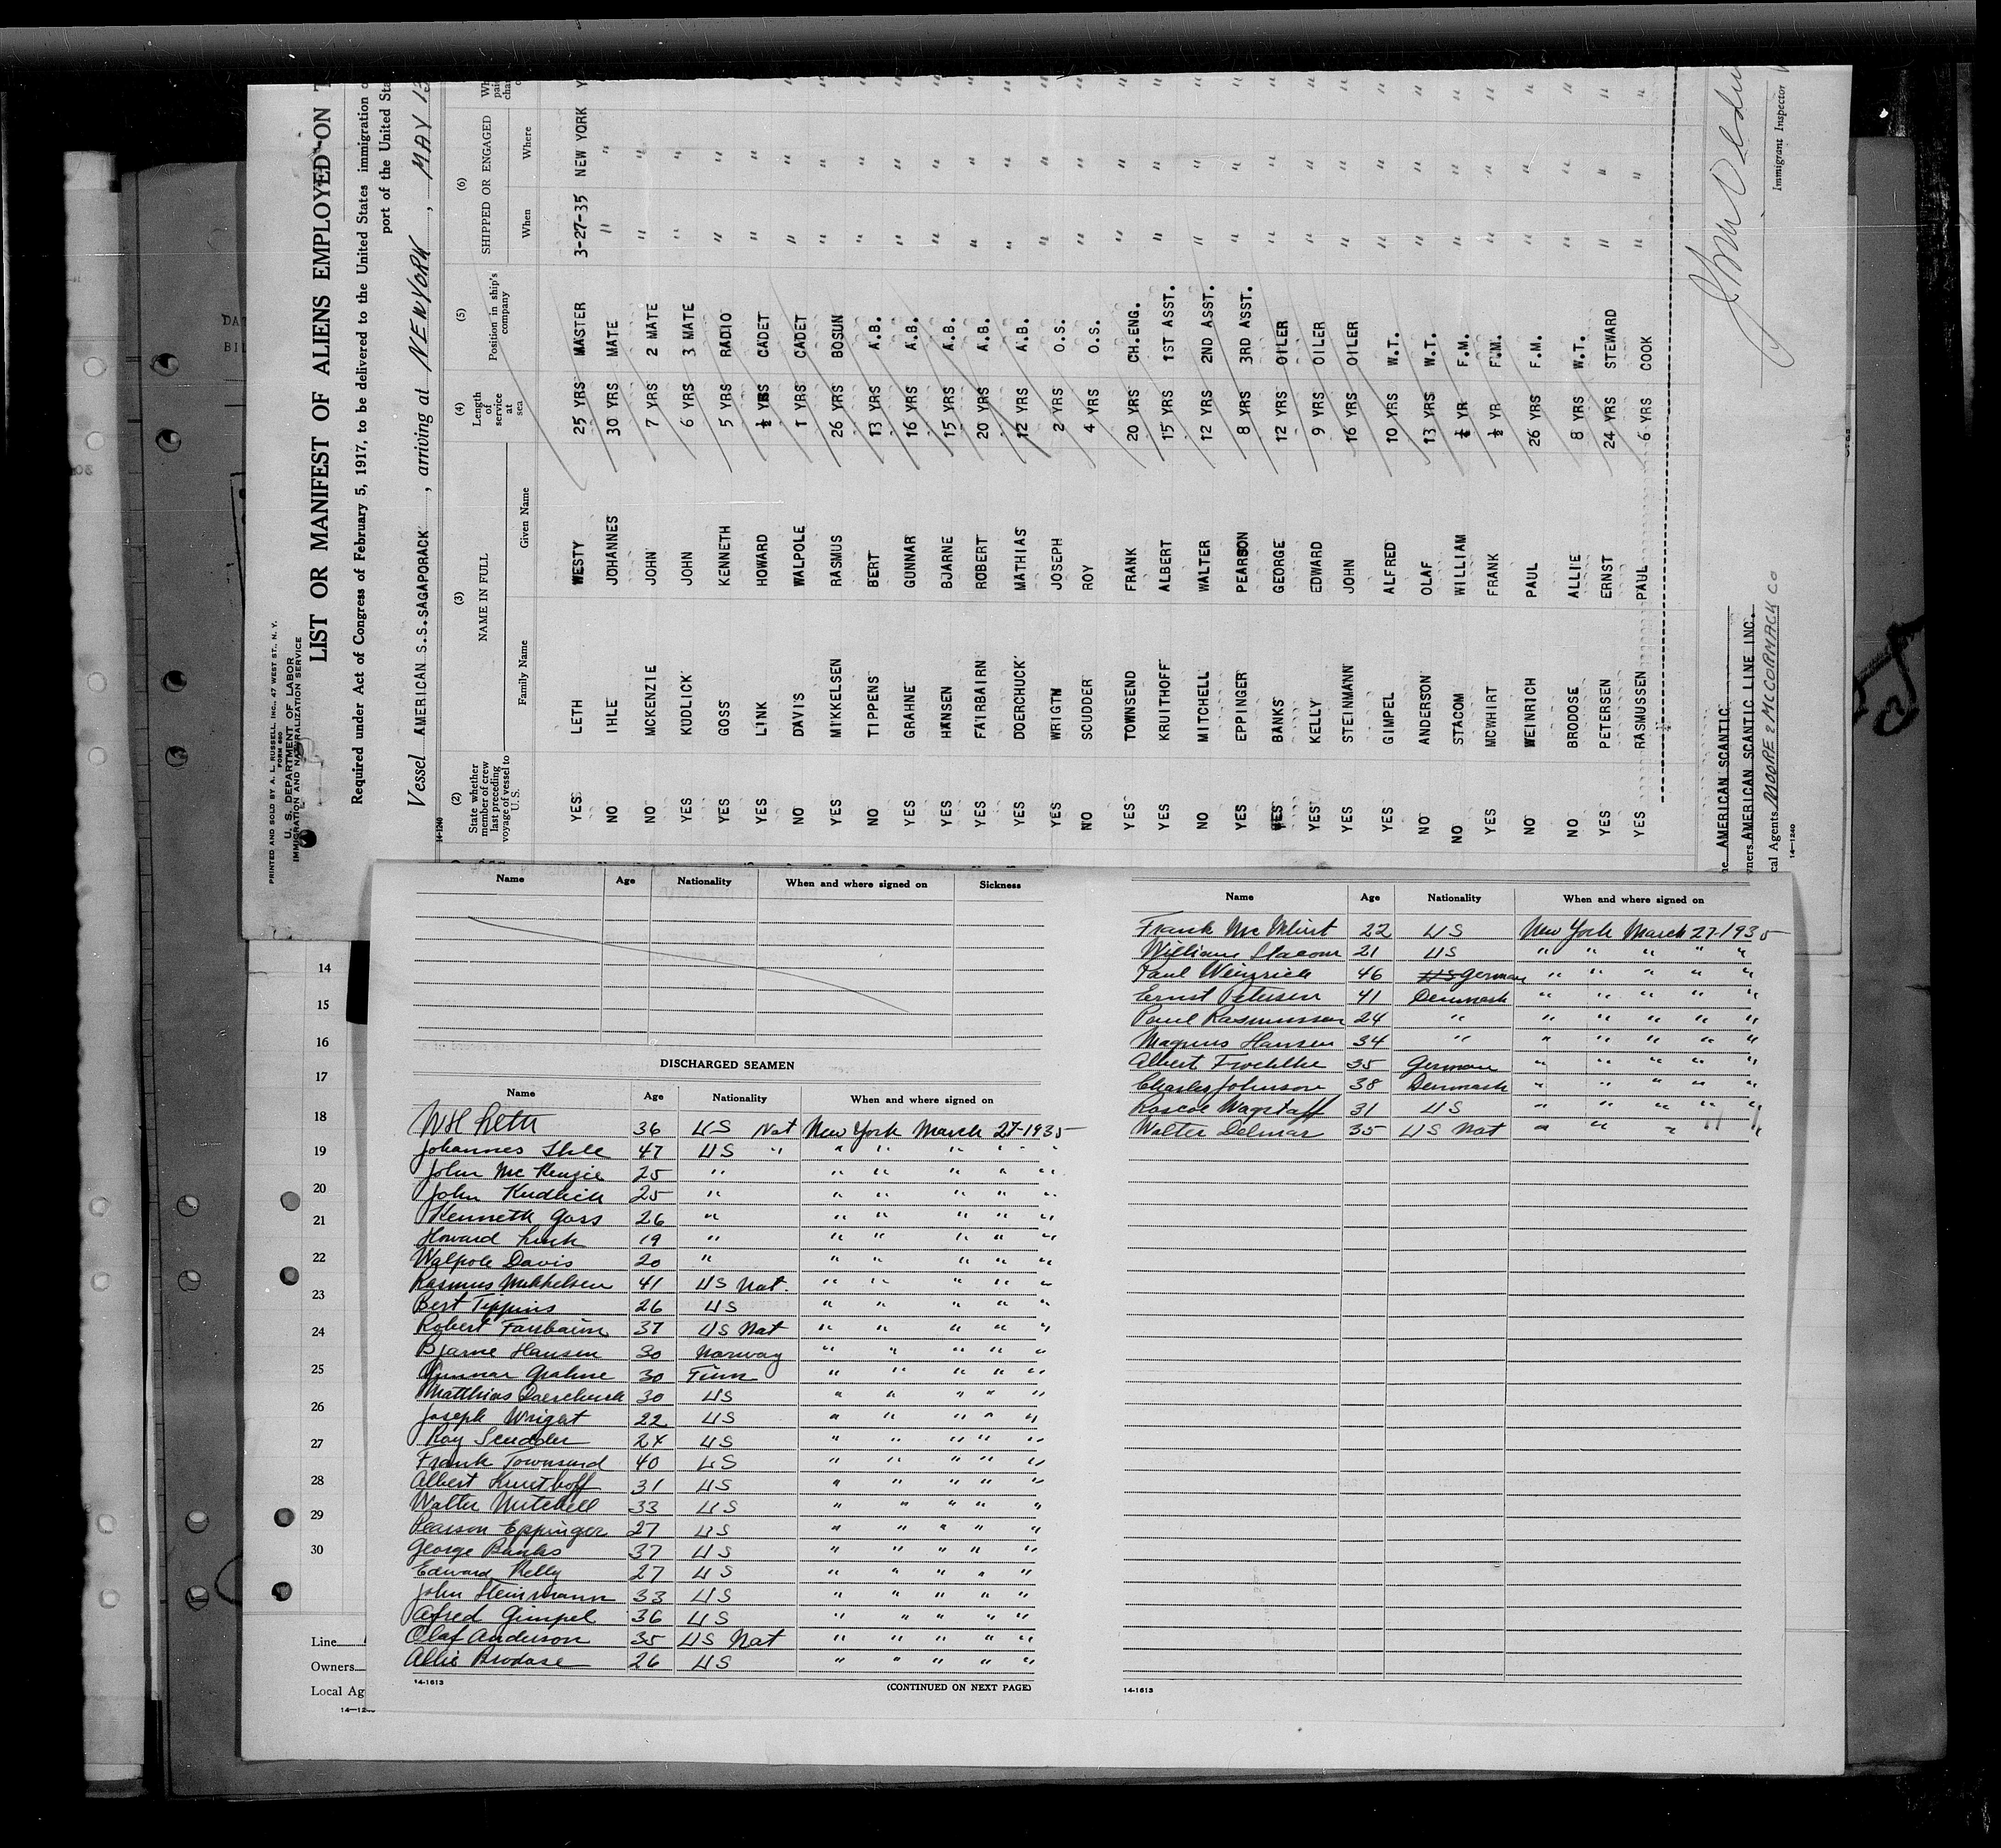 PRINTED AND SOLD BY A. L. RUSSELL, INC., 47 WEST ST., N. Y.
FORM 680
U. S. DEPARTMENT OF LABOR
IMMIGRATION AND NATURALIZATION SERVICE
LIST OR MANIFEST OF ALIENS EMPLOYED ON T
Required under Act of Congress of February 5, 1917, to be delivered to the United States immigration o
port of the United Sta
Vessel AMERICAN S.S.SAGAPORACK , arriving at NEW YORK , MAY 13
14-1240
(2) (3) (4) (5) (6)
State whether member of crew last preceding voyage of vessel to U.S. NAME IN FULL Length of service at sea Position in ship's company SHIPPED OR ENGAGED
Family Name Given Name When Where
YES LETH WESTY 25 YRS MASTER 3-27-35 NEW YORK Y
NO IHLE JOHANNES 30 YRS MATE " "
NO MCKENZIE JOHN 7 YRS 2 MATE " "
YES KUDLICK JOHN 6 YRS 3 MATE " "
YES GOSS KENNETH 5 YRS RADIO " "
YES LINK HOWARD ½ YRS CADET " "
NO DAVIS WALPOLE 1 YRS CADET " " "
YES MIKKELSEN RASMUS 26 YRS BOSUN " " "
NO TIPPENS BERT 13 YRS A.B. " " "
YES GRAHNE GUNNAR 16 YRS A.B. " " "
YES HANSEN BJARNE 15 YRS A.B. " " "
YES FAIRBAIRN ROBERT 20 YRS A.B. " " "
YES DOERCHUCK MATHIAS 12 YRS A.B. " " "
YES WRIGTH JOSEPH 2 YRS O.S. " " "
NO SCUDDER ROY 4 YRS O.S. " " "
YES TOWNSEND FRANK 20 YRS CH.ENG. " " "
YES KRUITHOFF ALBERT 15 YRS 1ST ASST. " " "
NO MITCHELL WALTER 12 YRS 2ND ASST. " " "
YES EPPINGER PEARSON 8 YRS 3RD ASST. " " "
YES BANKS GEORGE 12 YRS OILER " " "
YES KELLY EDWARD 9 YRS OILER " " "
YES STEINMANN JOHN 16 YRS OILER " " "
YES GIMPEL ALFRED 10 YRS W.T. " " "
NO ANDERSON OLAF 13 YRS W.T. " " "
NO STACOM WILLIAM ½ YR F.M. " " "
YES MCWHIRT FRANK ½ YR F.M. " " "
NO WEINRICH PAUL 26 YRS F.M. " " "
NO BRODOSE ALLIE 8 YRS W.T. " " "
YES PETERSEN ERNST 24 YRS STEWARD " " "
YES RASMUSSEN PAUL 6 YRS COOK " " "
ne AMERICAN SCANTIC
wners AMERICAN SCANTIC LINE INC.
cal Agents MOORE & MCCORMACK CO
14-1240
Immigrant Inspector
14
15
16
17
18
19
20
21
22
23
24
25
26
27
28
29
30
Line
Owners
Local Ag
Name Age Nationality When and where signed on Sickness
DISCHARGED SEAMEN
Name Age Nationality When and where signed on
WH Leth 36 US Nat New York March 27-1935
Johannes Ihle 47 US " " " " " "
John McKenzie 25 " " " " " "
John Kudlick 25 " " " " " "
Kenneth Goss 26 " " " " " "
Howard Link 19 " " " " " "
Walpole Davis 20 " " " " " "
Rasmus Mikkelsen 41 US Nat. " " " " "
Bert Tippins 26 US " " " " "
Robert Fairbairn 37 US Nat " " " " "
Bjarne Hansen 30 Norway " " " " "
Gunnar Grahne 30 Finn " " " " "
Matthias Doerchuck 30 US " " " " "
Joseph Wright 22 US " " " " "
Roy Scudder 24 US " " " " "
Frank Townsend 40 US " " " " "
Albert Kruithoff 31 US " " " " "
Walter Mitchell 33 US " " " " "
Pearson Eppinger 27 US " " " " "
George Banks 37 US " " " " "
Edward Kelly 27 US " " " " "
John Steinmann 33 US " " " " "
Alfred Gimpel 36 US " " " " "
Olaf Anderson 35 US Nat " " " " "
Allie Brodose 26 US " " " " "
14-1613 (CONTINUED ON NEXT PAGE)
Name Age Nationality When and where signed on
Frank McWhirt 22 US New York March 27-1935
William Stacom 21 US " " " " "
Paul Weinrich 46 US German " " " " "
Ernst Petersen 41 Denmark " " " " "
Paul Rasmussen 24 " " " " " "
Magnus Hansen 34 " " " " " "
Albert Froehlke 35 German " " " " "
Charles Johnson 38 Denmark " " " " "
Roscoe Wagstaff 31 US " " " " "
Walter Delmar 35 US Nat " " " " "
14-1613